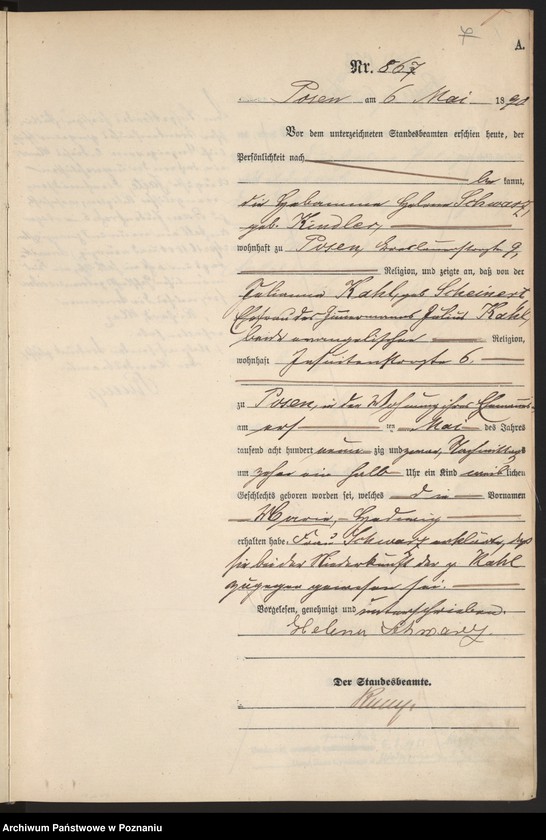 A.
Nr. 867
Posen am 6 Mai 189
Vor dem unterzeichneten Standesbeamten erschien heute, der
Persönlichkeit nach
be kannt,
die Hebamme Helene Schwarz,
geb. Kindler,
wohnhaft zu Posen, 9,
Religion, und zeigte an, daß von der
Kahl, geb. Scheinert,
Ehefrau des Julius Kahl,
beide evangelischer Religion,
wohnhaft Jesuitenstraße 6.
zu Posen, in der Wohnung ihres Ehemannes
am ten Mai des Jahres
tausend acht hundert neun zig und Nachmittags
um ein halb Uhr ein Kind weib lichen
Geschlechts geboren worden sei, welches die Vornamen
Hedwig
erhalten habe. Frau Schwarz erklärte, daß
sie bei der Niederkunft der p. Kahl
zugegen gewesen sei.
Vorgelesen, genehmigt und unterschrieben.
Helena Schwarz.
Der Standesbeamte.
Archiwum Państwowe w Poznaniu